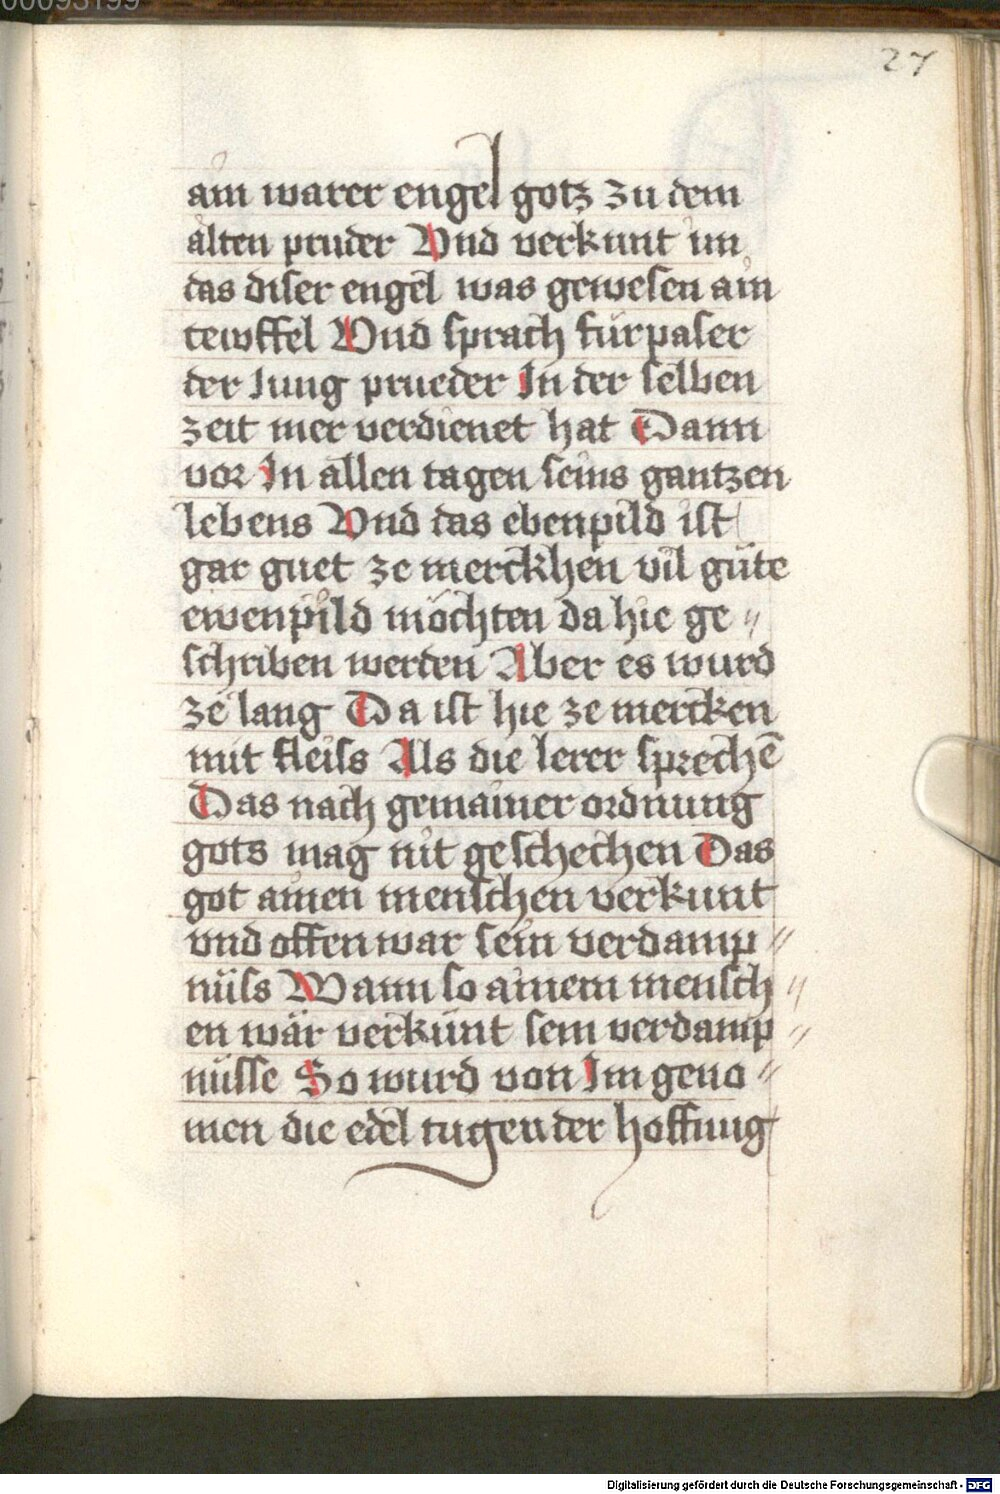 27
ain warer engel gotz zu dem
alten pruder Vnd verkunt im
das diser engel was gewesen ain
tewffel Vnd sprach fürpaser
der Jung prueder In der selben
zeit mer verdienet hat Dann
vor In allen tagen seins gantzen
lebens Vnd das ebenpild ist
gar guet ze merckhen vil güte
ewenpild möchten da hie ge〃
schriben werden Aber es wurd
ze lang Da ist hie ze mercken
mit fleiss Als die lerer sprechē
Das nach gemainer ordnung
gots mag nit geschechen Das
got ainen menschen verkunt
vnd offenwar sein verdamp〃
nüss Wann so ainem mensch〃
en wär verkünt sein verdamp〃
nüsse So wurd von Im geno〃
men die edel tugen der hoffnug
Digitalisierung gefördert durch die Deutsche Forschungsgemeinschaft - DFG